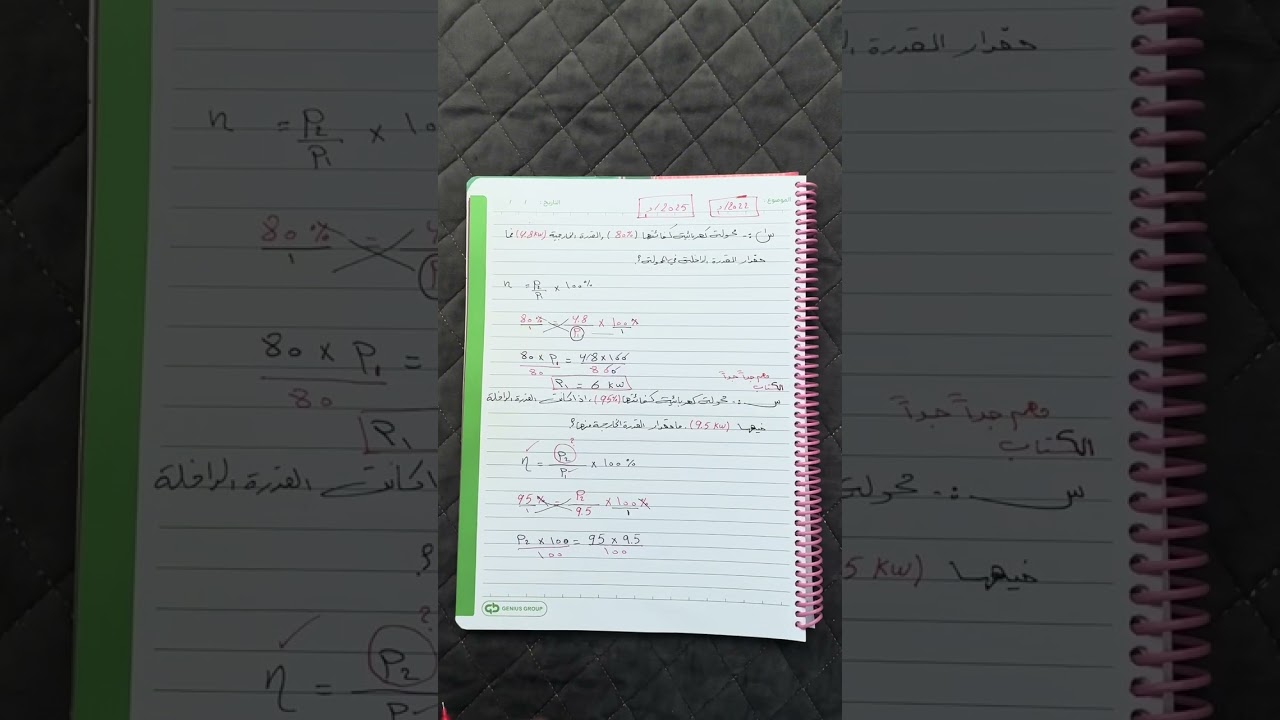 الموضوع :
التاريخ : / /
2022/د1
2025/د1
س/ :- محولة كهربائية كفائتها (80%) والقدرة الخارجة (4.8 KW) فما
مقدار القدرة الداخلة في المحولة؟
n = P2/P1 × 100%
80%/1 = 4.8/P1 × 100%/1
80 × P1/80 = 4.8 × 100/80
P1 = 6 KW
مهم جداً جداً
الكتاب
س :- محولة كهربائية كفائتها (95%)، اذا كانت القدرة الداخلة
فيها (9.5 KW)، ما مقدار القدرة الخارجة منها؟
?
η = P2/P1 × 100%
95%/1 = P2/9.5 × 100%/1
P2 × 100/100 = 95 × 9.5/100
GENIUS GROUP